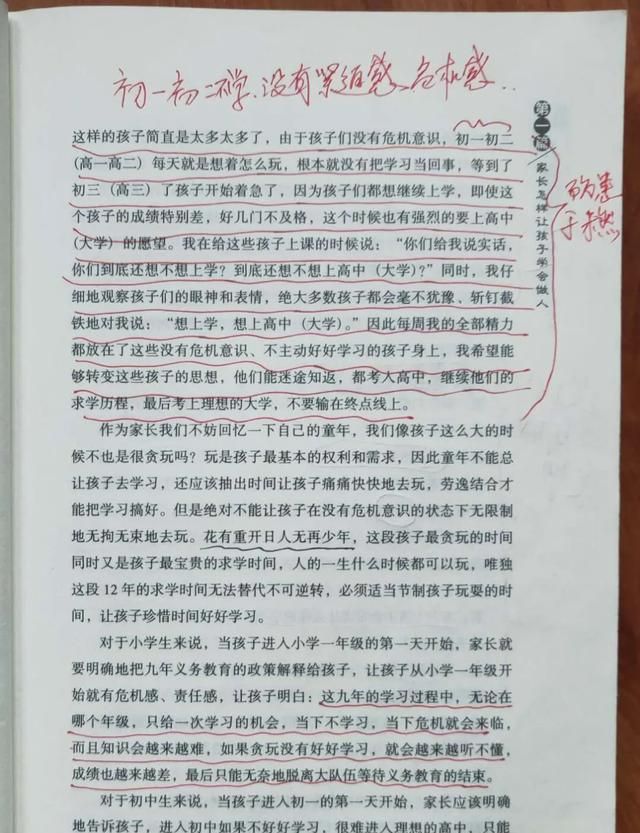 初一初二学、没有紧迫感、危机感..
这样的孩子简直是太多太多了，由于孩子们没有危机意识，初一初二
（高一高二）每天就是想着怎么玩，根本就没有把学习当回事，等到了
初三（高三）了孩子开始着急了，因为孩子们都想继续上学，即使这
个孩子的成绩特别差，好几门不及格，这个时候也有强烈的要上高中
（大学）的愿望。我在给这些孩子上课的时候说：“你们给我说实话，
你们到底还想不想上学？到底还想不想上高中（大学）？”同时，我仔
细地观察孩子们的眼神和表情，绝大多数孩子都会毫不犹豫、斩钉截
铁地对我说：“想上学，想上高中（大学）。”因此每周我的全部精力
都放在了这些没有危机意识、不主动好好学习的孩子身上，我希望能
够转变这些孩子的思想，他们能迷途知返，都考入高中，继续他们的
求学历程，最后考上理想的大学，不要输在终点线上。
作为家长我们不妨回忆一下自己的童年，我们像孩子这么大的时
候不也是很贪玩吗？玩是孩子最基本的权利和需求，因此童年不能总
让孩子去学习，还应该抽出时间让孩子痛痛快快地去玩，劳逸结合才
能把学习搞好。但是绝对不能让孩子在没有危机意识的状态下无限制
地无拘无束地去玩。花有重开日人无再少年，这段孩子最贪玩的时间
同时又是孩子最宝贵的求学时间，人的一生什么时候都可以玩，唯独
这段 12 年的求学时间无法替代不可逆转，必须适当节制孩子玩耍的时
间，让孩子珍惜时间好好学习。
对于小学生来说，当孩子进入小学一年级的第一天开始，家长就
要明确地把九年义务教育的政策解释给孩子，让孩子从小学一年级开
始就有危机感、责任感，让孩子明白：这九年的学习过程中，无论在
哪个年级，只给一次学习的机会，当下不学习，当下危机就会来临，
而且知识会越来越难，如果贪玩没有好好学习，就会越来越听不懂，
成绩也越来越差，最后只能无奈地脱离大队伍等待义务教育的结束。
对于初中生来说，当孩子进入初一的第一天开始，家长应该明确
地告诉孩子，进入初中如果不好好学习，很难进入理想的高中，只能
第一篇
家长怎样让孩子学会做人
于未然